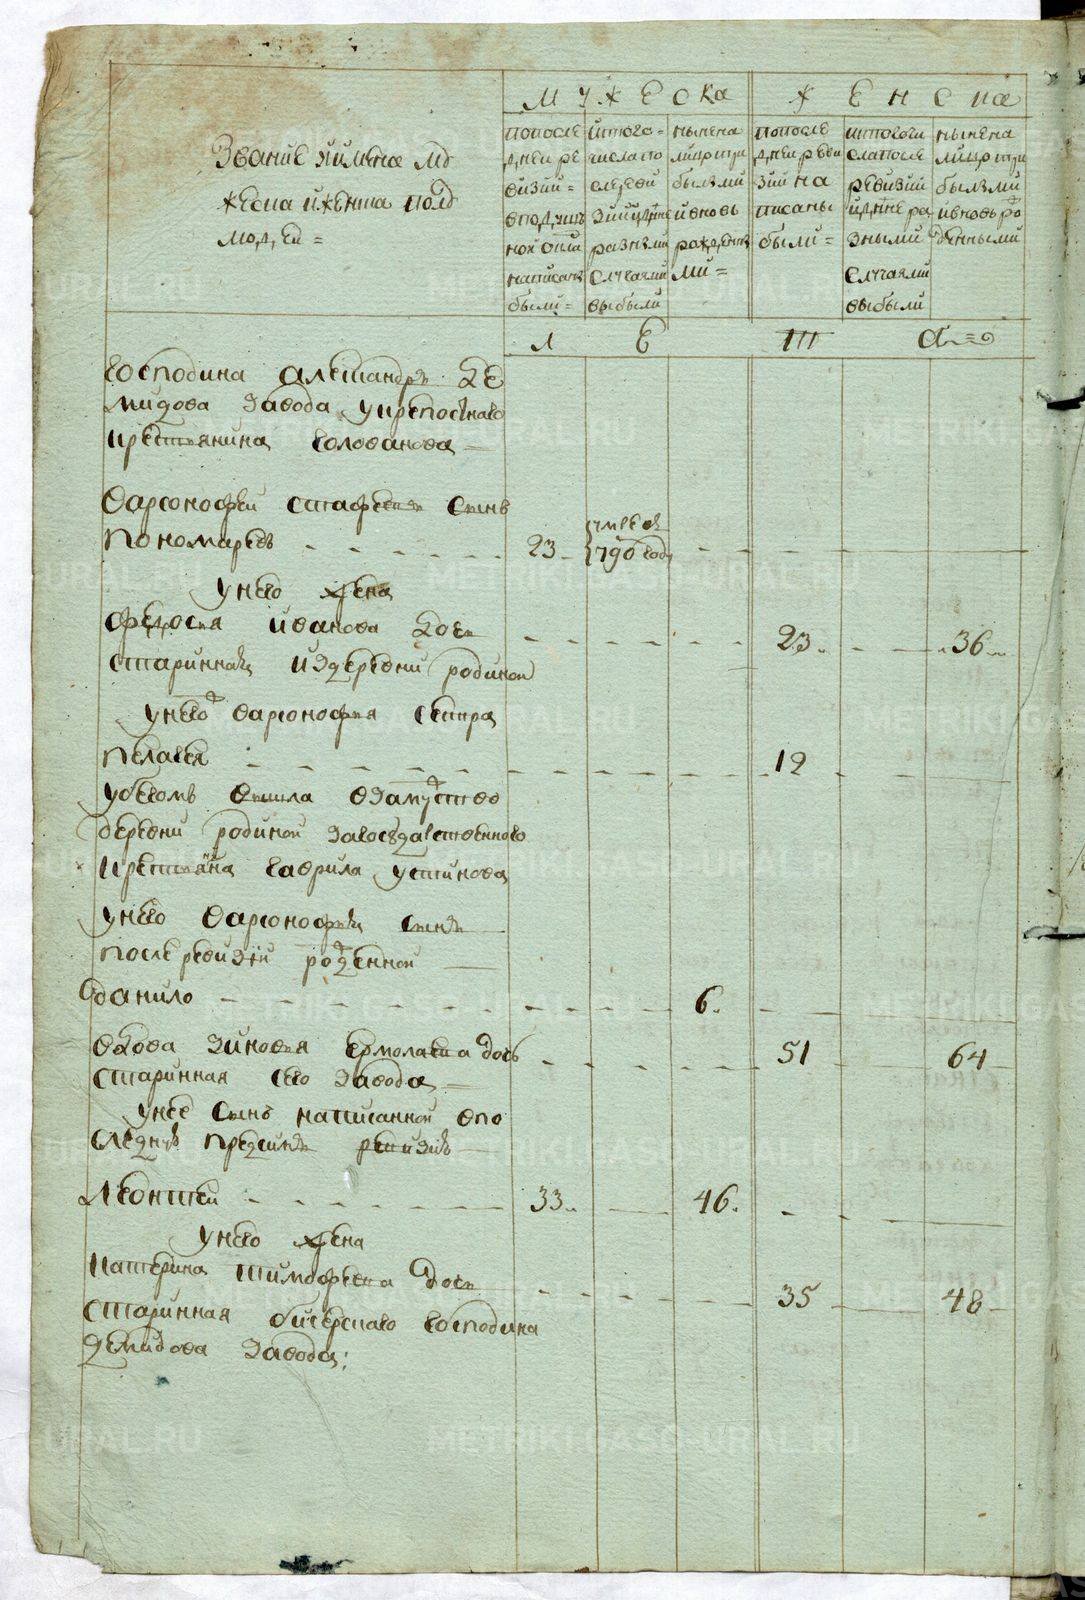 МУЖЕСКА
ЖЕНСКА
Звание и имена му
жеска и женска пола
людей =
по после
дней ре
визии =
в под уш
ной окла
написаны
были =
ис того =
числа по
сле реви
зии
разными
случаями
выбыли
ныне на
лицо при
былыми
и вновь
рожденны
ми =
по после
дней реви
зии на
писаны
были =
ис того чи
сла после
ревизии
ра
зными
случаями
выбыли
ныне на
лицо при
былыми
и вновь ро
жденными
Л Е Т
Господина Александра Де
мидова завода укрепоснаго
крестьянина Голованова
Варсонофей Стафеев сынъ
Пономаревъ 23 умре в 1790 году
у него жена
Федосья Иванова дочь 23 36
старинная из деревни родиной
у него Варсонофия сестра
Пелагея 12
убегомъ вышла в замуство
деревни родиной за государственного
крестьянина Гаврила Устинова
у него Варсонофия сынъ
после ревизии рожденной
Данило 6
вдова Зиновья Ермолаева дочь 51 64
старинная сего завода
у нее сынъ написанной в по
следнуъ пред симъ ревизиъ
Леонтей 33 46
у него жена
Катерина Тимофеева дочь 35 48
старинная бисерскаго господина
Демидова завода;
METRIKI.GASO-URAL.RU